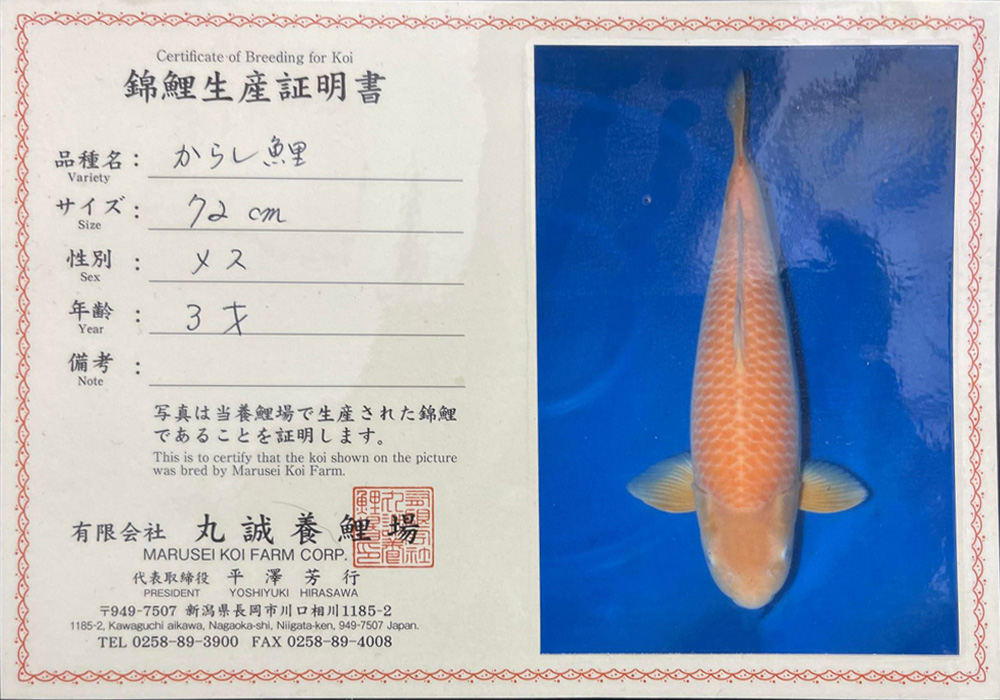 Certificate of Breeding for Koi
錦鯉生産証明書
品種名： からし鯉
Variety
サイズ： 72 cm
Size
性別： メス
Sex
年齢： 3才
Year
備考：
Note
写真は当養鯉場で生産された錦鯉
であることを証明します。
This is to certify that the koi shown on the picture
was bred by Marusei Koi Farm.
有限会社 丸誠養鯉場
MARUSEI KOI FARM CORP.
代表取締役 平澤芳行
PRESIDENT YOSHIYUKI HIRASAWA
〒949-7507 新潟県長岡市川口相川1185-2
1185-2, Kawaguchi aikawa, Nagaoka-shi, Niigata-ken, 949-7507 Japan.
TEL 0258-89-3900 FAX 0258-89-4008